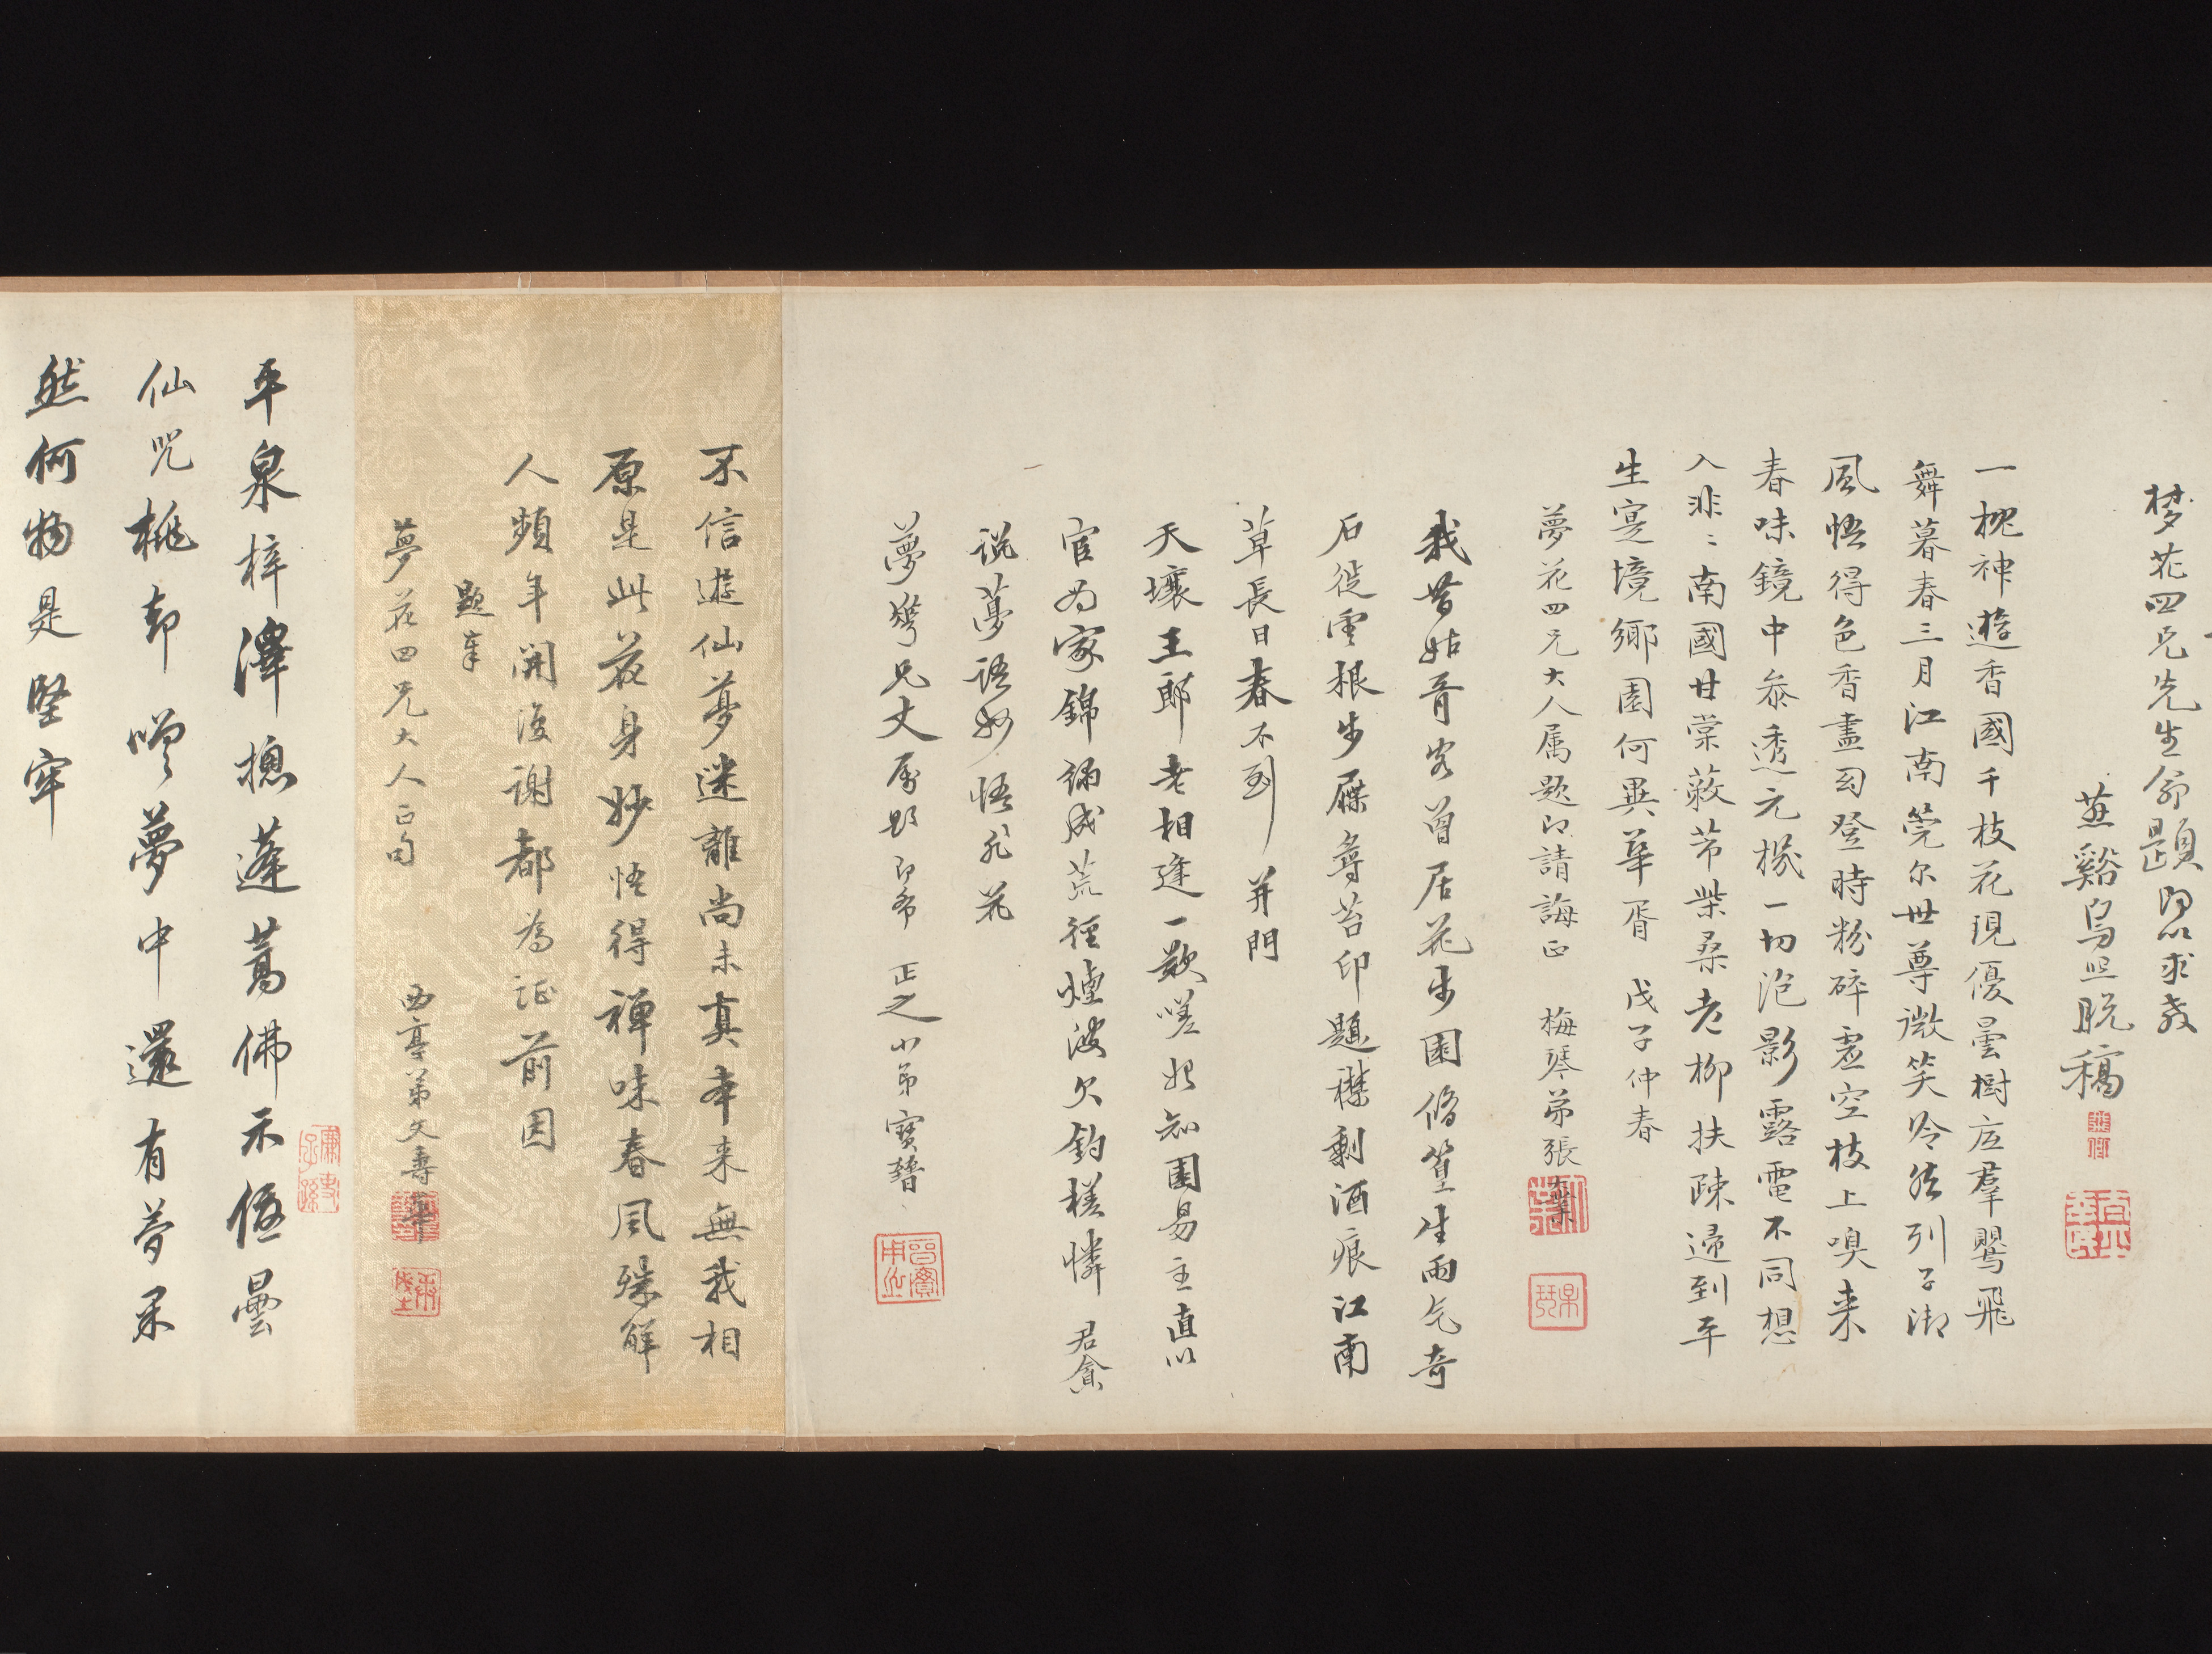 梦花四兄先生命題即以求教
燕谿烏思脱稿
一棍神遊香國千枝花現優曇樹底羣鸎飛
舞暮春三月江南筦尔世尊微笑冷然列子御
風悟得色香盡幻登時粉碎虛空枝上嗅来
春味鏡中叅透元機一切泡影露電不同想
入非〻南國甘棠蔽芾柴桑老柳扶疎歸到平
生寔境鄉園何異華胥　戊子仲春
夢花四兄大人属題即請誨正　梅琴弟張
我昔姑胥客曾居花步園脩篁生雨气奇
石從雲根步屧尋苔印題襟剩酒痕江南
草長日春不到并門
天壤王郎老相逢一歎嗟始知園易主直以
官为家錦誦成荒徑煙波欠釣槎憐君貪
说夢語妙悟非花
夢花兄丈属題即希正之小弟寶
不信遊仙夢迷離尚未真本来無我相
原是此花身妙悟得禪味春風殊解
人頻年開復謝都為証前因
題奉
夢花四兄大人正句
西亭弟文壽
平泉梓澤揔蓬蒿佛示優曇
仙咒桃却嘆夢中還有夢果
然何物是堅牢